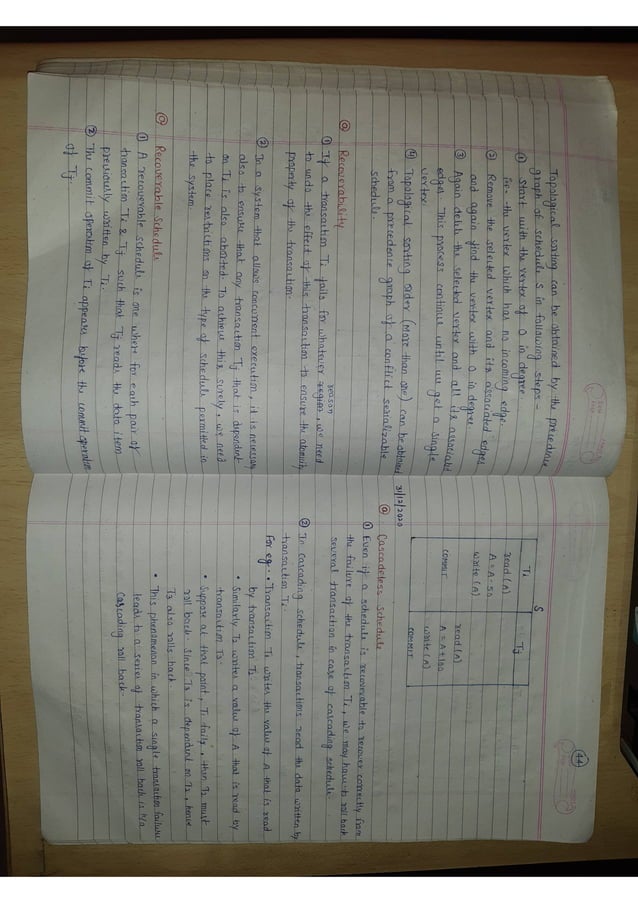 Topological sorting can be obtained by the precedence
graph of schedule S in following steps -
① Start with the vertex of 0 in degree
i.e. the vertex which has no incoming edge.
② Remove the selected vertex and its associated edges
and again find the vertex with 0 in degree
③ Again delete the selected vertex and all its associated
edges. This process continues until we get a single
vertex.
④ Topological sorting order (More than one) can be obtained
from a precedence graph of a conflict serializable
schedule.
@ Recoverability
① If a transaction Ti fails for whatever reason, we need
to undo the effect of this transaction to ensure the atomicity
property of the transaction.
② In a system that allows concurrent execution, it is necessary
also to ensure that any transaction Tj that is dependent
on Ti is also aborted. To achieve this surely, we need
to place restrictions on the type of schedule permitted in
the system.
@ Recoverable Schedule
① A recoverable schedule is one where for each pair of
transaction Ti & Tj such that Tj reads the data item
previously written by Ti.
② The commit operation of Ti appears before the commit operation
of Tj.
44
S
Ti Tj
read(A)
A = A-50
write(A)
read(A)
A = A+100
commit
write(A)
commit
31/12/2020
@ Cascadeless Schedule
① Even if a schedule is recoverable to recover correctly from
the failure of the transaction Ti, we may have to roll back
several transaction in case of cascading schedule.
② In cascading schedule, transactions read the data written by
transaction Ti.
For eg:- • Transaction T1 writes the value of A that is read
by transaction T2.
• Similarly T2 writes a value of A that is read by
transaction T3.
• Suppose at that point, T1 fails, then T2 must
roll back. Since T3 is dependent on T2, hence
T3 also rolls back.
• This phenomenon in which a single transaction failure
leads to a series of transaction roll back is k/a
Cascading roll back.